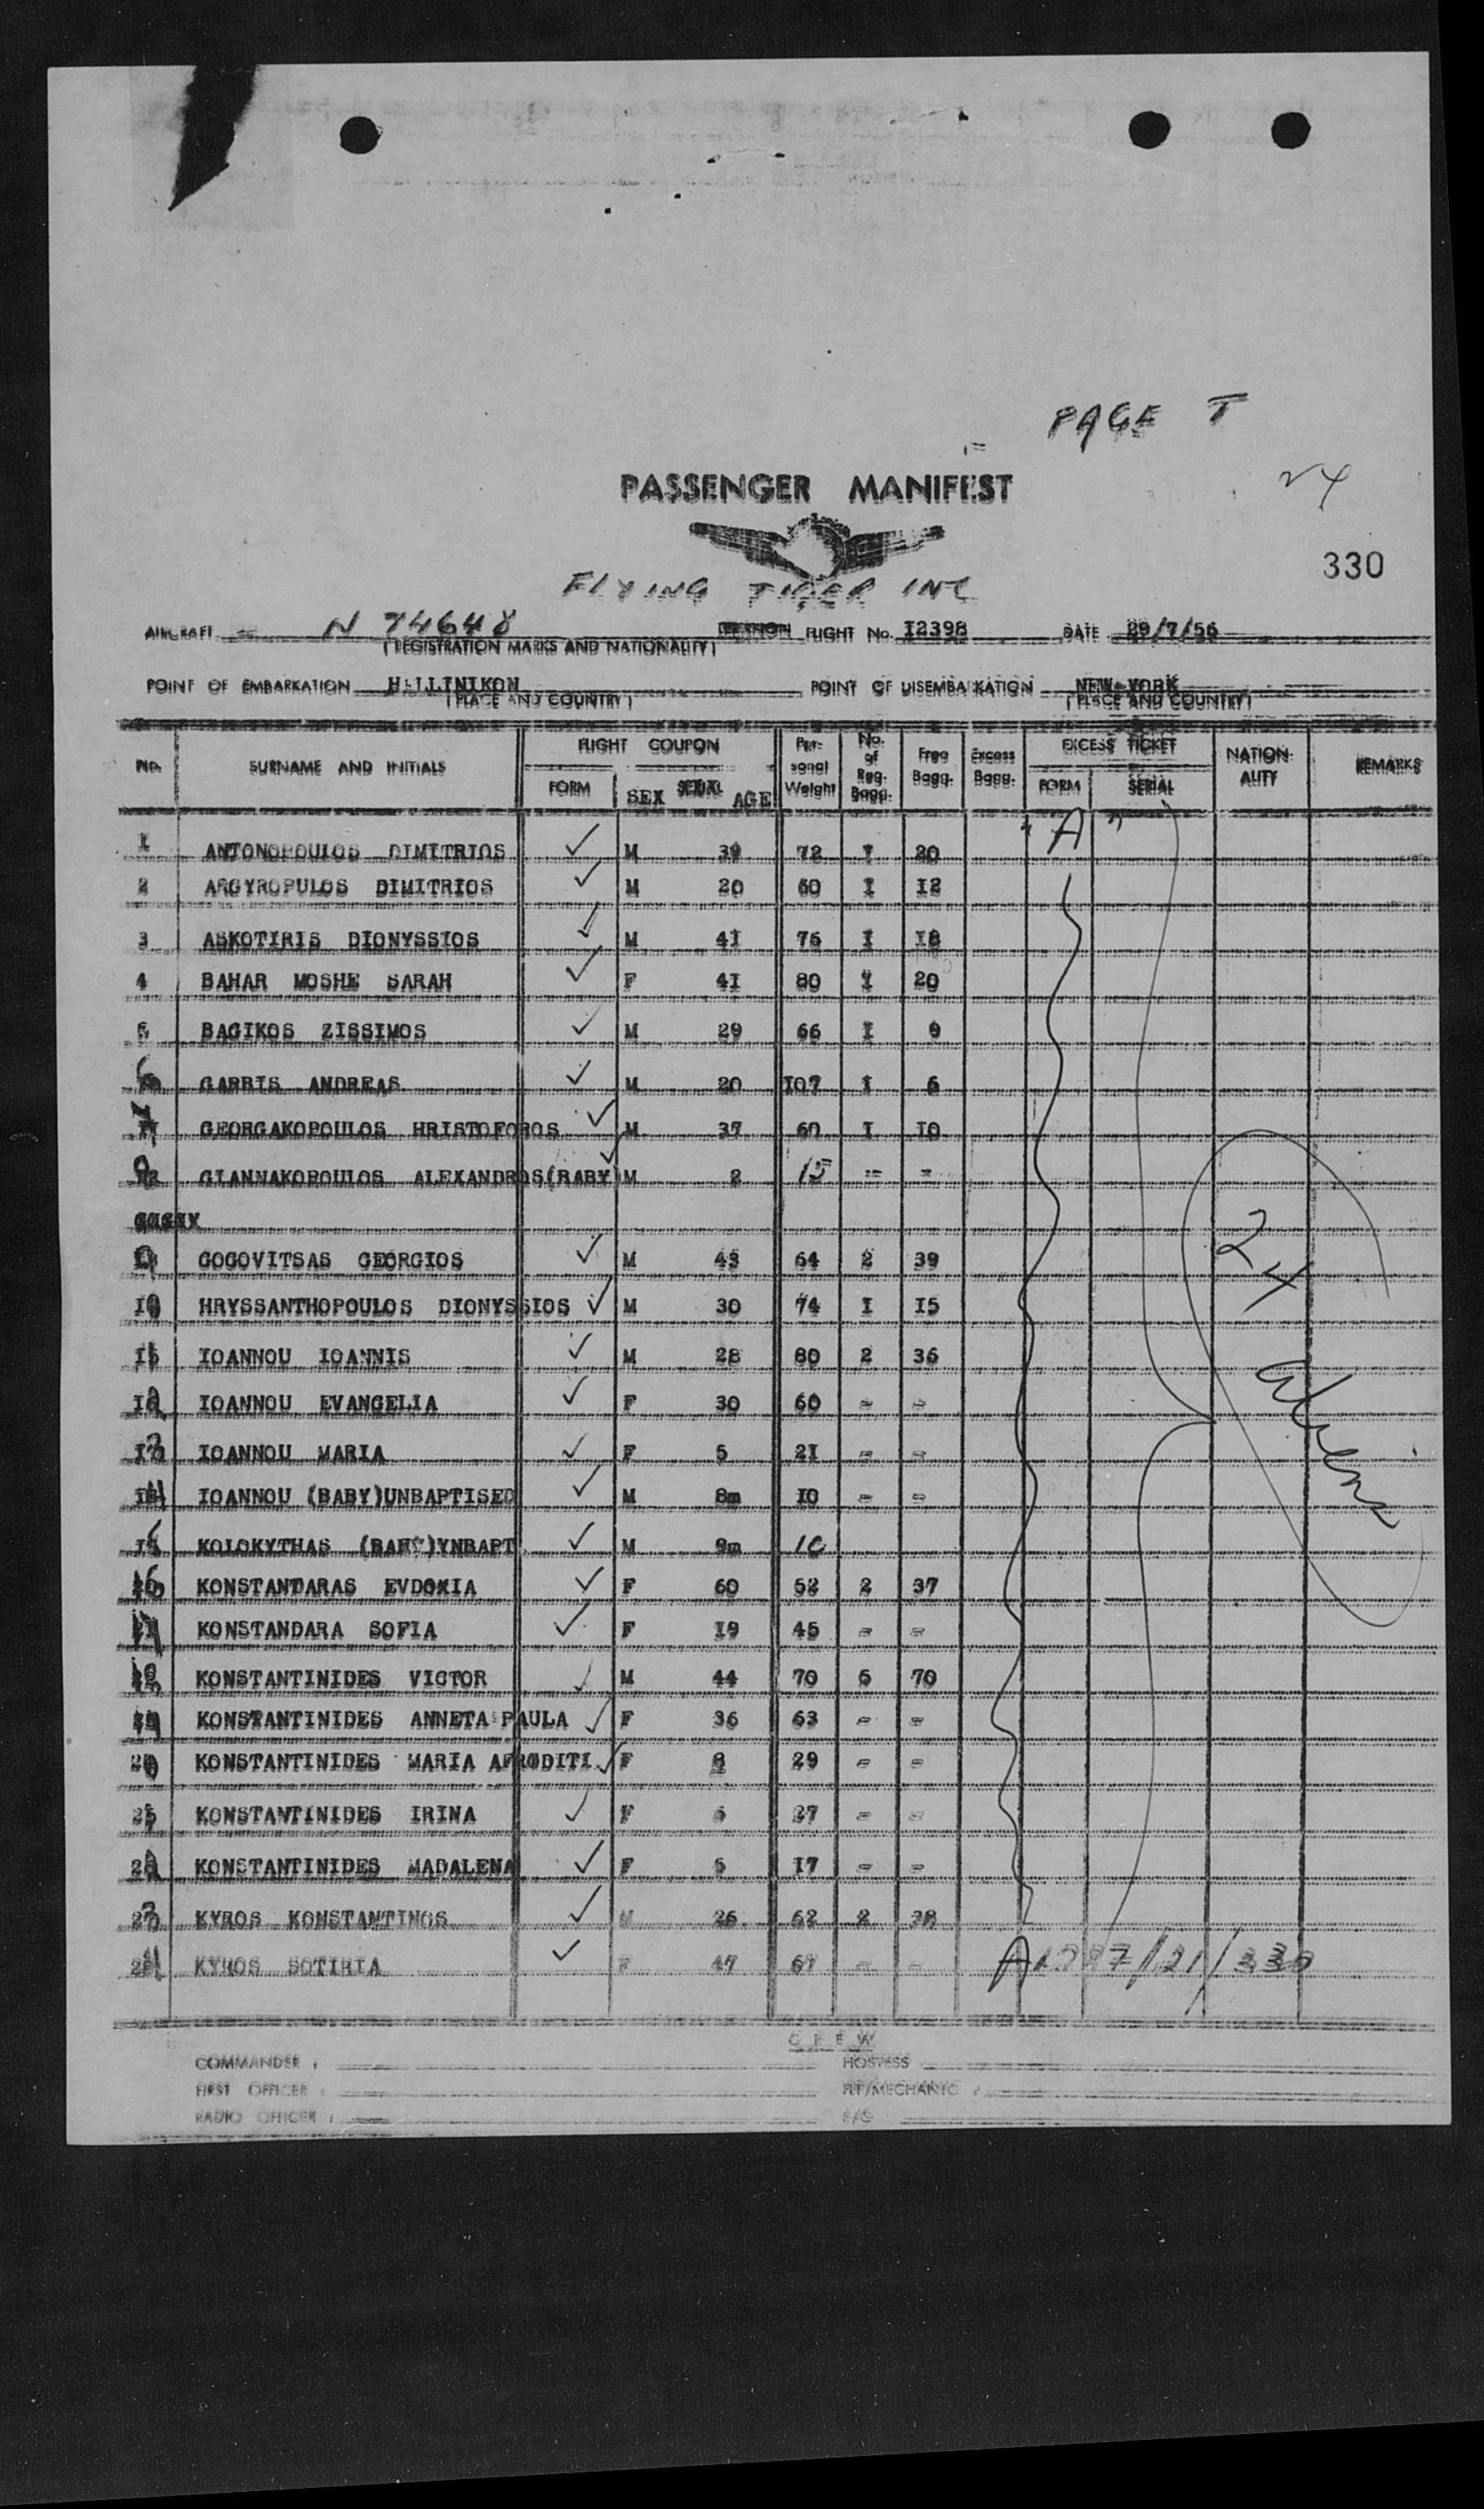 PAGE I
24
PASSENGER MANIFEST
330
FLYING TIGER INC
AIRCRAFT N 74648 FLIGHT No. I2398 DATE 29/7/56
(REGISTRATION MARKS AND NATIONALITY)
POINT OF EMBARKATION HELLINIKON POINT OF DISEMBARKATION NEW-YORK
(PLACE AND COUNTRY) (PLACE AND COUNTRY)
No. SURNAME AND INITIALS FLIGHT COUPON FORM SEX SERIAL AGE Per-sonal Weight No. of Reg. Bagg. Free Bagg. Excess Bagg. EXCESS TICKET FORM SERIAL NATION-ALITY REMARKS
"A"
1 ANTONOPOULOS DIMITRIOS ✓ M 39 72 I 20
2 ARGYROPULOS DIMITRIOS ✓ M 20 60 I I2
3 ASKOTIRIS DIONYSSIOS ✓ M 4I 76 I I8
4 BAHAR MOSHE SARAH ✓ F 4I 80 I 20
5 BAGIKOS ZISSIMOS ✓ M 29 66 I 9
6 GARBIS ANDREAS ✓ M 20 I07 I 6
7 GEORGAKOPOULOS HRISTOFOROS ✓ M 37 60 I I0
8 GIANNAKOPOULOS ALEXANDROS(BABY) ✓ M 2 15 - -
9 GOGOVITSAS GEORGIOS ✓ M 43 64 2 39
10 HRYSSANTHOPOULOS DIONYSSIOS ✓ M 30 74 I I5
11 IOANNOU IOANNIS ✓ M 28 80 2 36
12 IOANNOU EVANGELIA ✓ F 30 60 - -
13 IOANNOU MARIA ✓ F 5 2I - -
14 IOANNOU (BABY)UNBAPTISED ✓ M 8m I0 - -
15 KOLOKYTHAS (BABY)YNBAPT ✓ M 9m 10
16 KONSTANDARAS EVDOXIA ✓ F 60 52 2 37
17 KONSTANDARA SOFIA ✓ F I9 45 - -
18 KONSTANTINIDES VICTOR ✓ M 44 70 5 70
19 KONSTANTINIDES ANNETA PAULA ✓ F 36 63 - -
20 KONSTANTINIDES MARIA AFRODITI ✓ F 8 29 - -
21 KONSTANTINIDES IRINA ✓ F 27 - -
22 KONSTANTINIDES MADALENA ✓ F 5 I7 - -
23 KYROS KONSTANTINOS ✓ M 26 62 2 38
24 KYROS SOTIRIA ✓ F 47 67 - -
24
/21/330
CREW
COMMANDER : HOSTESS
FIRST OFFICER : FLT/MECHANIC :
RADIO OFFICER :